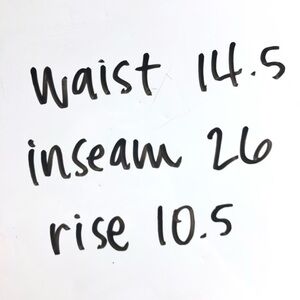 waist 14.5
inseam 26
rise 10.5